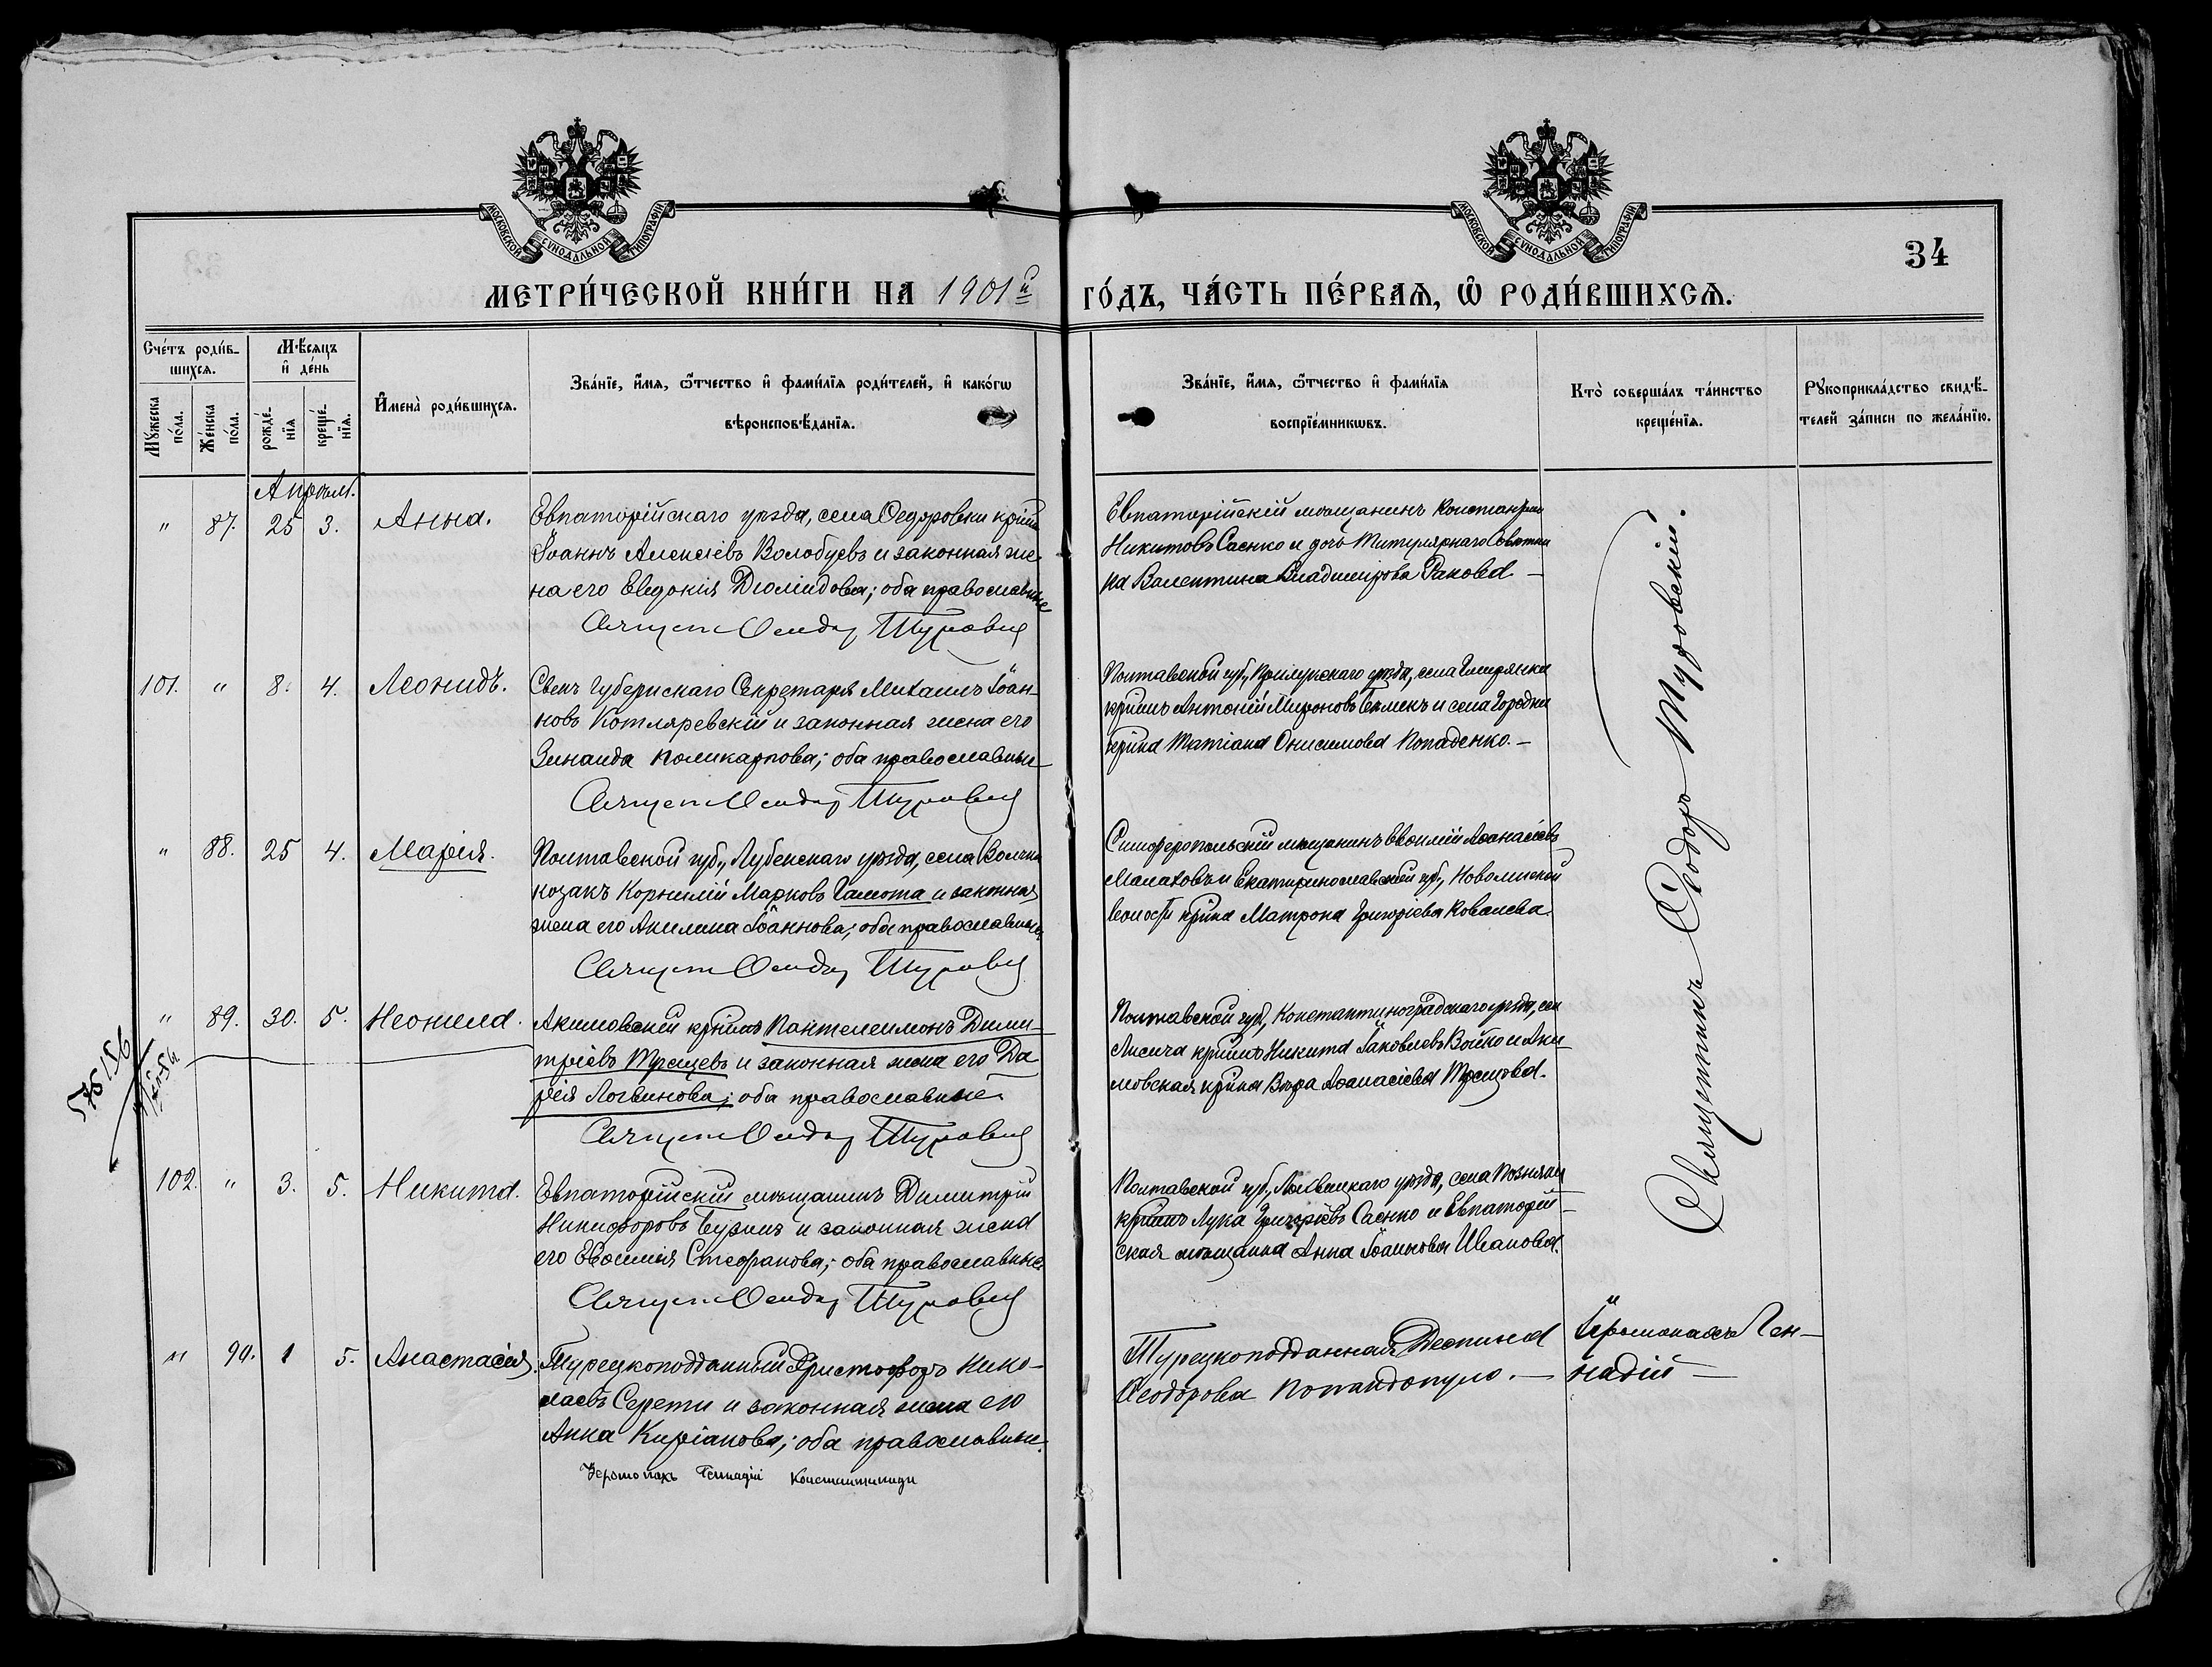 МОСКОВСКОЙ СѴНОДАЛЬНОЙ ТИПОГРАФІИ
МОСКОВСКОЙ СѴНОДАЛЬНОЙ ТИПОГРАФІИ
34
МЕТРИ́ЧЕСКОЙ КНИ́ГИ НА 1901й ГО́ДЪ, ЧА́СТЬ ПЕ́РВАЯ, Ѡ РОДИ́ВШИХСЯ.
Сче́тъ роди́в-
шихся.
Мꙋжеска по́ла.
Же́нска по́ла.
Мѣ́сяцъ
и҆ де́нь
рожде́-
нїя
креще́-
нїя.
И҆мена̀ роди́вшихся.
Зва́нїе, и҆́мя, ѻ҆́тчество и҆ фами́лїя роди́телей, и҆ како́гѡ
вѣроисповѣ́данїя.
Зва́нїе, и҆́мя, ѻ҆́тчество и҆ фами́лїя
воспрїе́мникѡвъ.
Кто̀ соверша́лъ та́инство
креще́нїя.
Рꙋкоприкла́дство свидѣ́-
телей за́писи по жела́нїю.
Апрѣл.
" 87. 25 3. Анна.
Евпаторійскаго уѣзда, села Ѳедоровки крінъ
Іоаннъ Алексіевъ Волобуевъ и законная же-
на его Евдокія Діомидова; оба православные
Священ Ѳеодор Туровскій
Евпаторійскій мѣщанинъ Константин
Никитовъ Саенко и дочь Титулярнаго Совѣтни
ка Валентина Владимірова Ракова. —
101. " 8. 4. Леонидъ.
Сынъ Губернскаго Секретаря Михаилъ Іоан-
новъ Котляревскій и законная жена его
Зинаида Поликарпова; оба православные
Священ Ѳеодор Туровскій
Полтавской губ., Прилукскаго уѣзда, села
крінъ Антоній Мироновъ и села Городни
кріна Татіана Онисимова Попаденко. —
" 88. 25 4. Марія.
Полтавской губ., Лубенскаго уѣзда, села
козакъ Корнилій Марковъ Гамота и законная
жена его Акилина Іоаннова; оба православные
Священ Ѳеодор Туровскій
Симферопольскій мѣщанинъ Евѳимій Аѳанасіевъ
Малаховъ и Екатеринославской губ.,
волости кріна Матрона Григоріева Ковалева.
" 89. 30. 5. Неонила.
Акимовскій крінъ Пантелеимонъ Дими-
тріевъ Трещевъ и законная жена его Да
рія Логвинова; оба православные.
Священ Ѳеодор Туровскій
Полтавской губ., Константиноградскаго уѣзда, сел
крінъ Никита Іаковлевъ Бойко и Аки-
мовская кріна Вѣра Аѳанасіева Трещова.
102. " 3. 5. Никита.
Евпаторійскій мѣщанинъ Димитрій
Никифоровъ и законная жена
его Евѳимія Стефанова; оба православные
Священ Ѳеодор Туровскій
Полтавской губ., Лохвицкаго уѣзда, села Позняки
крінъ Лука Григоріевъ Саенко и Евпаторій-
ская мѣщанка Анна Іоаннова Иванова.
Священникъ Ѳеодоръ Туровскій.
" 90. 1 5. Анастасія.
Турецкоподданный Христофоръ Нико-
лаевъ Серети и законная жена его
Анна Киріакова; оба православные.
Іеромонахъ Геннадій Константиниди
Турецкоподданная Деспина
Ѳеодорова Попандопуло. —
Іеромонахъ Ген-
надій —